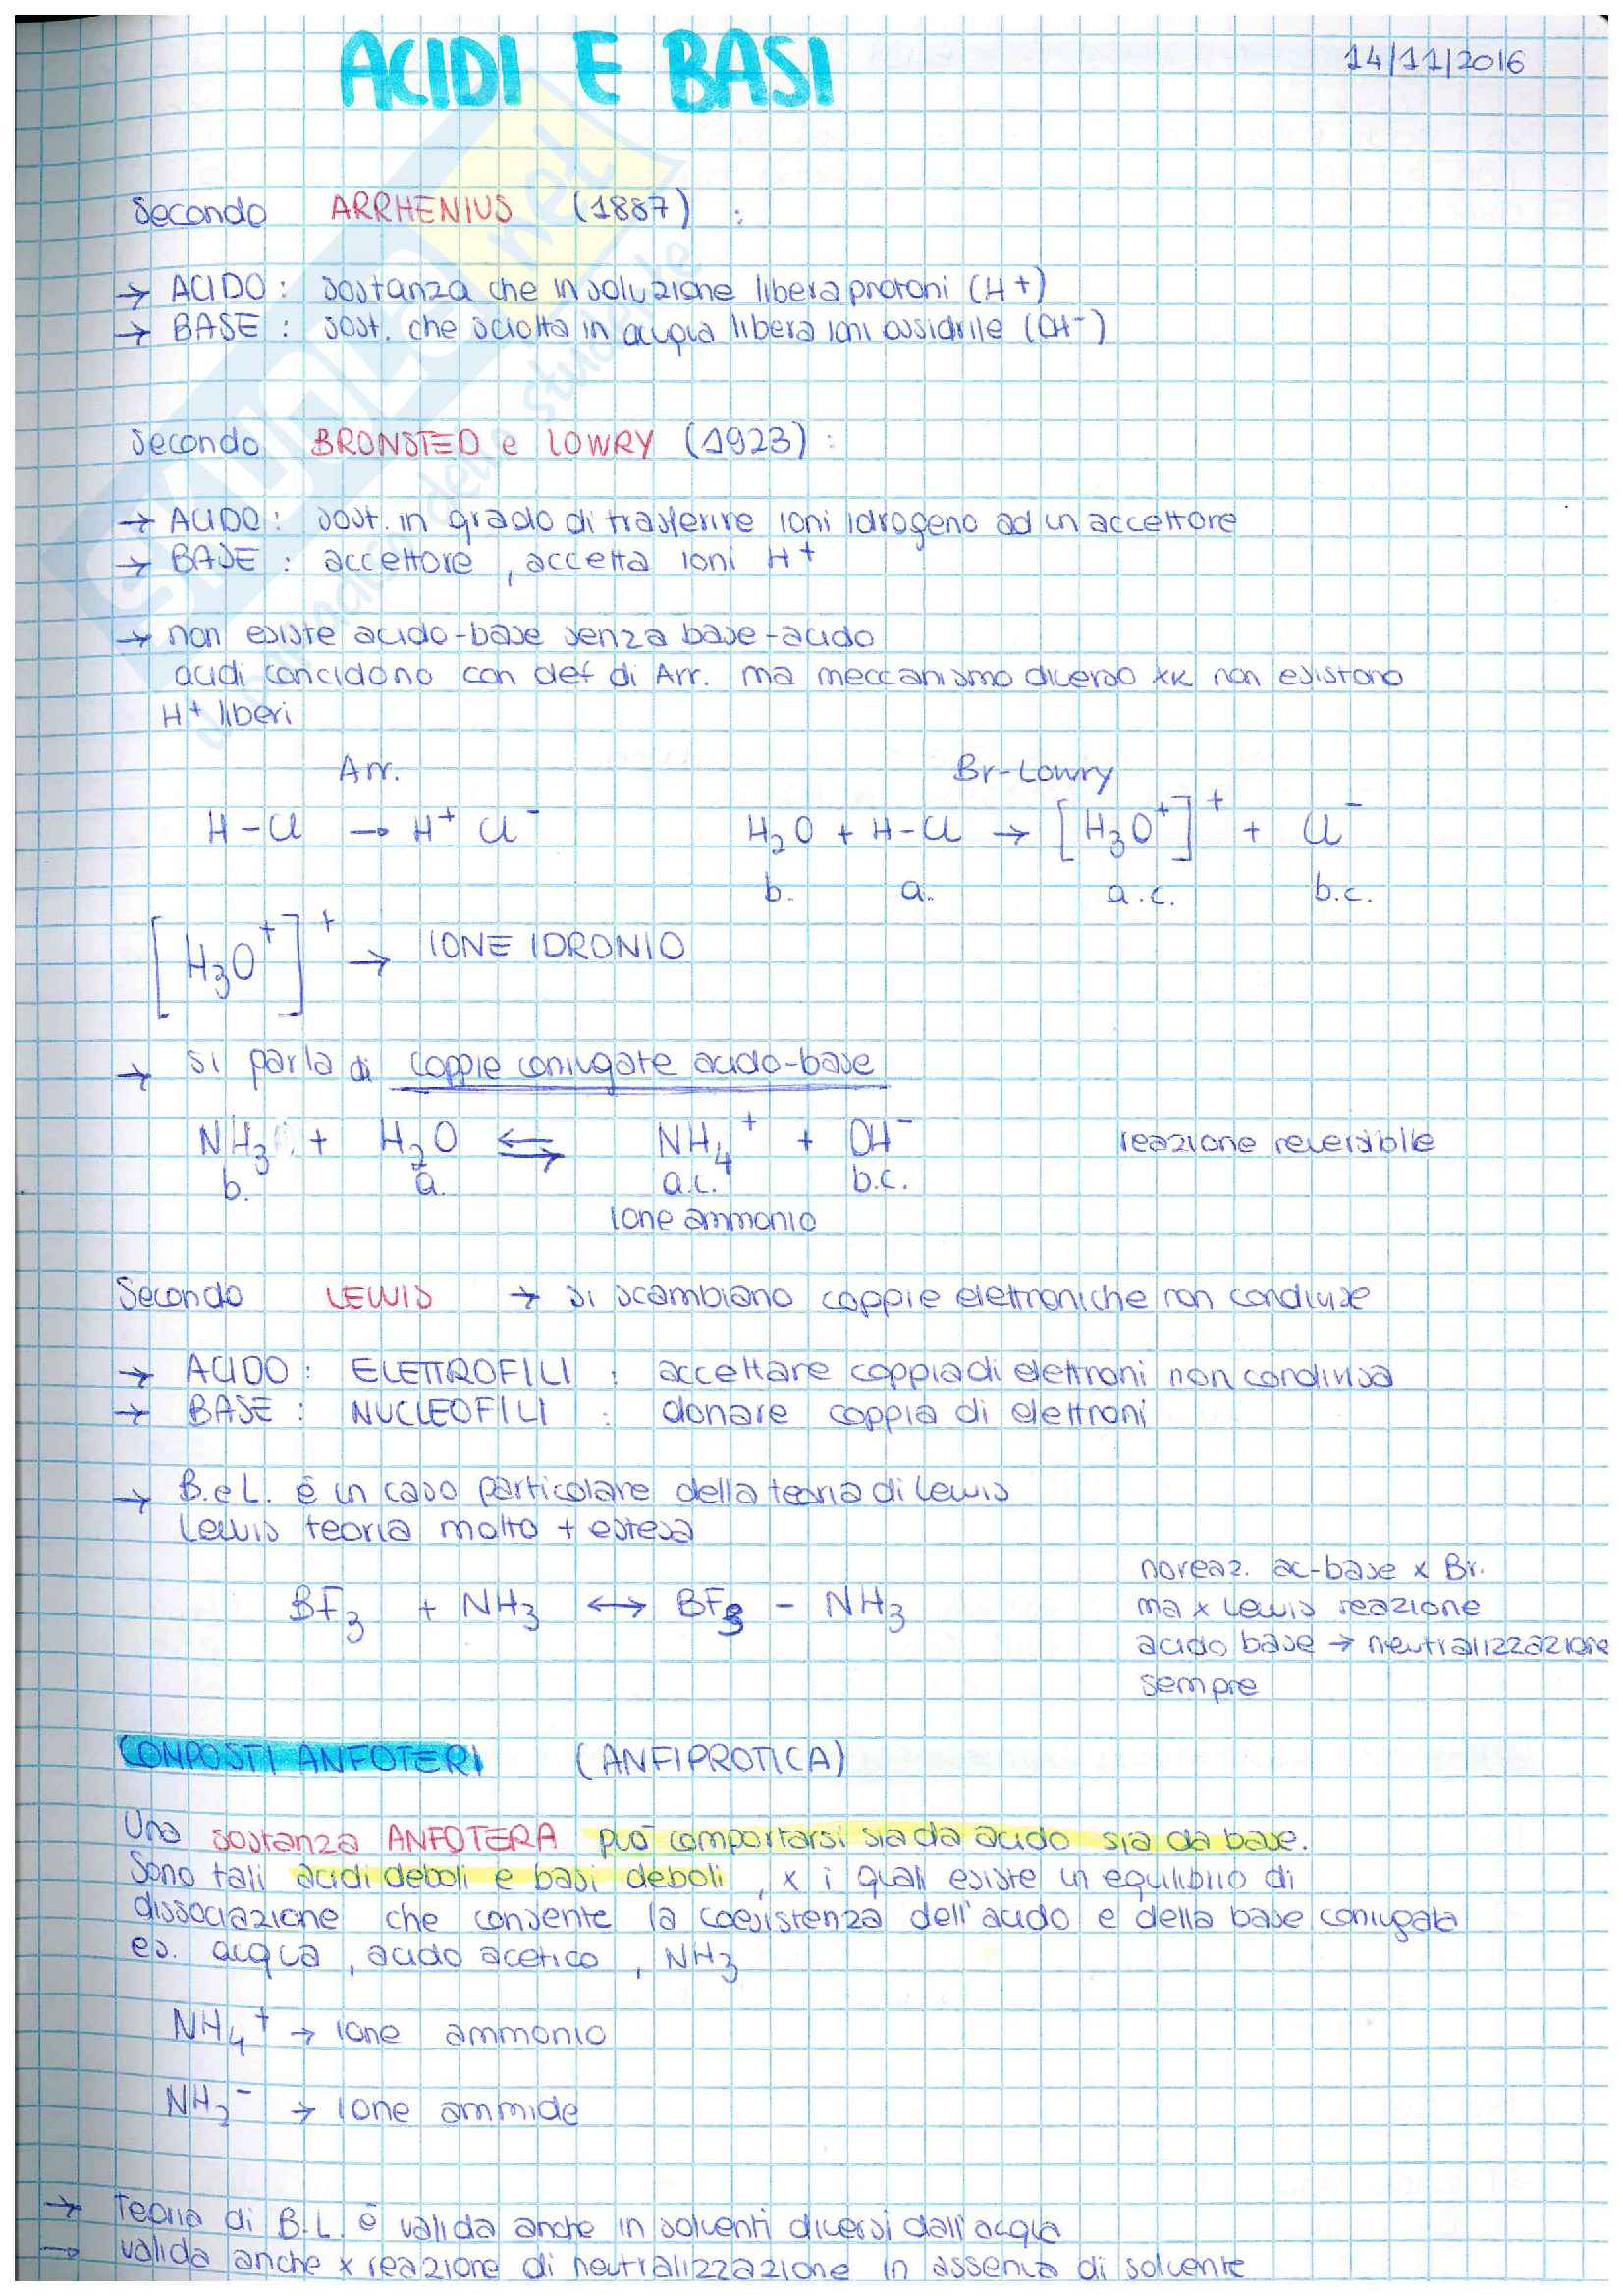 ACIDI E BASI
14/11/2016
Secondo ARRHENIUS (1887) :
→ ACIDO : sostanza che in soluzione libera protoni (H+)
→ BASE : sost. che sciolta in acqua libera ioni ossidrile (OH⁻)
Secondo BRONSTED e LOWRY (1923) :
→ ACIDO : sost. in grado di trasferire ioni idrogeno ad un accettore
→ BASE : accettore , accetta ioni H⁺
→ non esiste acido-base senza base-acido
acidi concidono con def di Arr. ma meccanismo diverso xk non esistono
H⁺ liberi
Arr. Br-Lowry
H-Cl → H⁺ Cl⁻ H₂O + H-Cl → [H₃O⁺]⁺ + Cl⁻
b. a. a.c. b.c.
[H₃O⁺]⁺ → IONE IDRONIO
→ si parla di coppie coniugate acido-base
NH₃ + H₂O ⇆ NH₄⁺ + OH⁻ reazione reversibile
b. a. a.c. b.c.
ione ammonio
Secondo LEWIS → si scambiano coppie elettroniche non condivise
→ ACIDO : ELETTROFILI : accettare coppia di elettroni non condivisa
→ BASE : NUCLEOFILI : donare coppia di elettroni
→ B. e L. è un caso particolare della teoria di Lewis
Lewis teoria molto + estesa
BF₃ + NH₃ ↔ BF₃ - NH₃
no reaz. ac-base x Br.
ma x Lewis reazione
acido base → neutralizzazione
sempre
COMPOSTI ANFOTERI (ANFIPROTICA)
Una sostanza ANFOTERA può comportarsi sia da acido sia da base.
Sono tali acidi deboli e basi deboli , x i quali esiste un equilibrio di
dissociazione che consente la coesistenza dell'acido e della base coniugata
es. acqua , acido acetico , NH₃
NH₄⁺ → ione ammonio
NH₂⁻ → ione ammide
→ Teoria di B.L. è valida anche in solventi diversi dall'acqua
→ valida anche x reazione di neutralizzazione in assenza di solvente